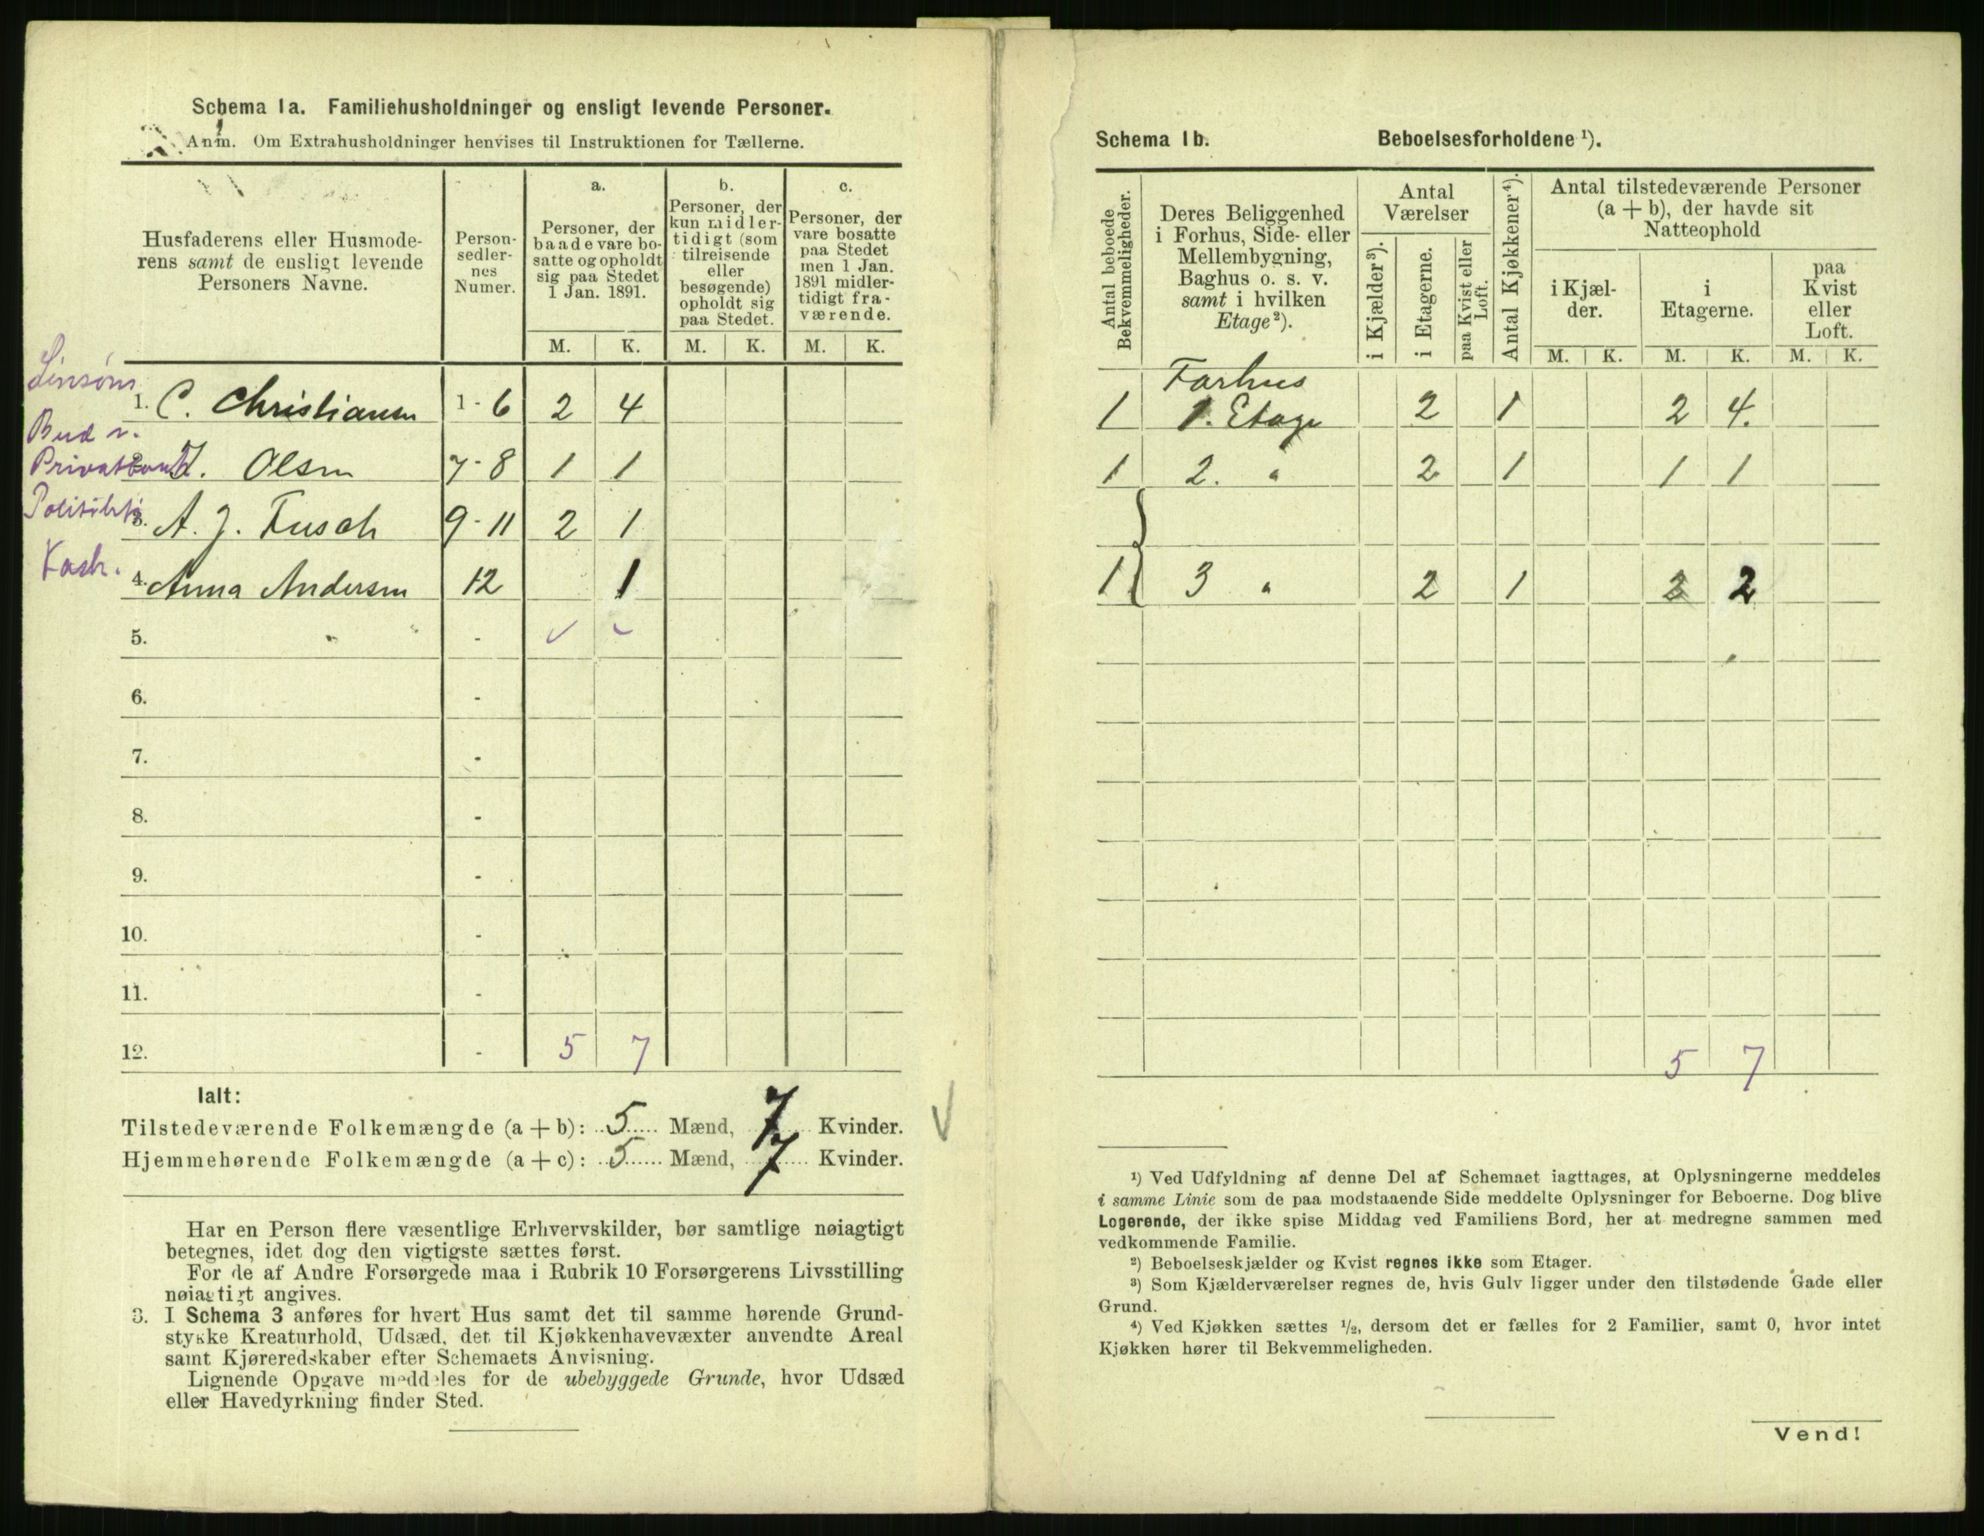 Schema 1a. Familiehusholdninger og ensligt levende Personer.
Anm. Om Extrahusholdninger henvises til Instruktionen for Tællerne.
Husfaderens eller Husmode-
rens samt de ensligt levende
Personers Navne.
Person-
sedler-
nes
Numer.
a.
Personer, der
baade vare bo-
satte og opholdt
sig paa Stedet
1 Jan. 1891.
b.
Personer, der
kun midler-
tidigt (som
tilreisende
eller
besøgende)
opholdt sig
paa Stedet.
c.
Personer, der
vare bosatte
paa Stedet
men 1 Jan.
1891 midler-
tidigt fra-
værende.
M. K. M. K. M. K.
1. C. Christiansen 1 - 6 2 4
Bud v.
2. J. Olsen 7 - 8 1 1
3. A. J. Fusch 9 - 11 2 1
4. Anna Andersen 12 1
5. -
6. -
7. -
8. -
9. -
10. -
11. -
12. - 5 7
Ialt:
Tilstedeværende Folkemængde (a + b): 5 Mænd, 7 Kvinder.
Hjemmehørende Folkemængde (a + c): 5 Mænd, 7 Kvinder.
Har en Person flere væsentlige Erhvervskilder, bør samtlige nøiagtigt
betegnes, idet dog den vigtigste sættes først.
For de af Andre Forsørgede maa i Rubrik 10 Forsørgerens Livsstilling
nøiagtigt angives.
3. I Schema 3 anføres for hvert Hus samt det til samme hørende Grund-
stykke Kreaturhold, Udsæd, det til Kjøkkenhavevæxter anvendte Areal
samt Kjøreredskaber efter Schemaets Anvisning.
Lignende Opgave meddeles for de ubebyggede Grunde, hvor Udsæd
eller Havedyrkning finder Sted.
Schema 1b. Beboelsesforholdene ¹).
Antal beboede
Bekvemmeligheder.
Deres Beliggenhed
i Forhus, Side- eller
Mellembygning,
Baghus o. s. v.
samt i hvilken
Etage²).
Antal
Værelser
i Kjælder³).
i Etagerne.
paa Kvist eller
Loft.
Antal Kjøkkener⁴).
Antal tilstedeværende Personer
(a + b), der havde sit
Natteophold
i Kjæl-
der.
i
Etagerne.
paa
Kvist
eller
Loft.
M. K. M. K. M. K.
Forhus
1 1. Etage 2 1 2 4.
1 2. " 2 1 1 1
1 3 " 2 1 2 2
5 7
¹) Ved Udfyldning af denne Del af Schemaet iagttages, at Oplysningerne meddeles
i samme Linie som de paa modstaaende Side meddelte Oplysninger for Beboerne. Dog blive
Logerende, der ikke spise Middag ved Familiens Bord, her at medregne sammen med
vedkommende Familie.
²) Beboelseskjælder og Kvist regnes ikke som Etager.
³) Som Kjælderværelser regnes de, hvis Gulv ligger under den tilstødende Gade eller
Grund.
⁴) Ved Kjøkken sættes ½, dersom det er fælles for 2 Familier, samt 0, hvor intet
Kjøkken hører til Bekvemmeligheden.
Vend!